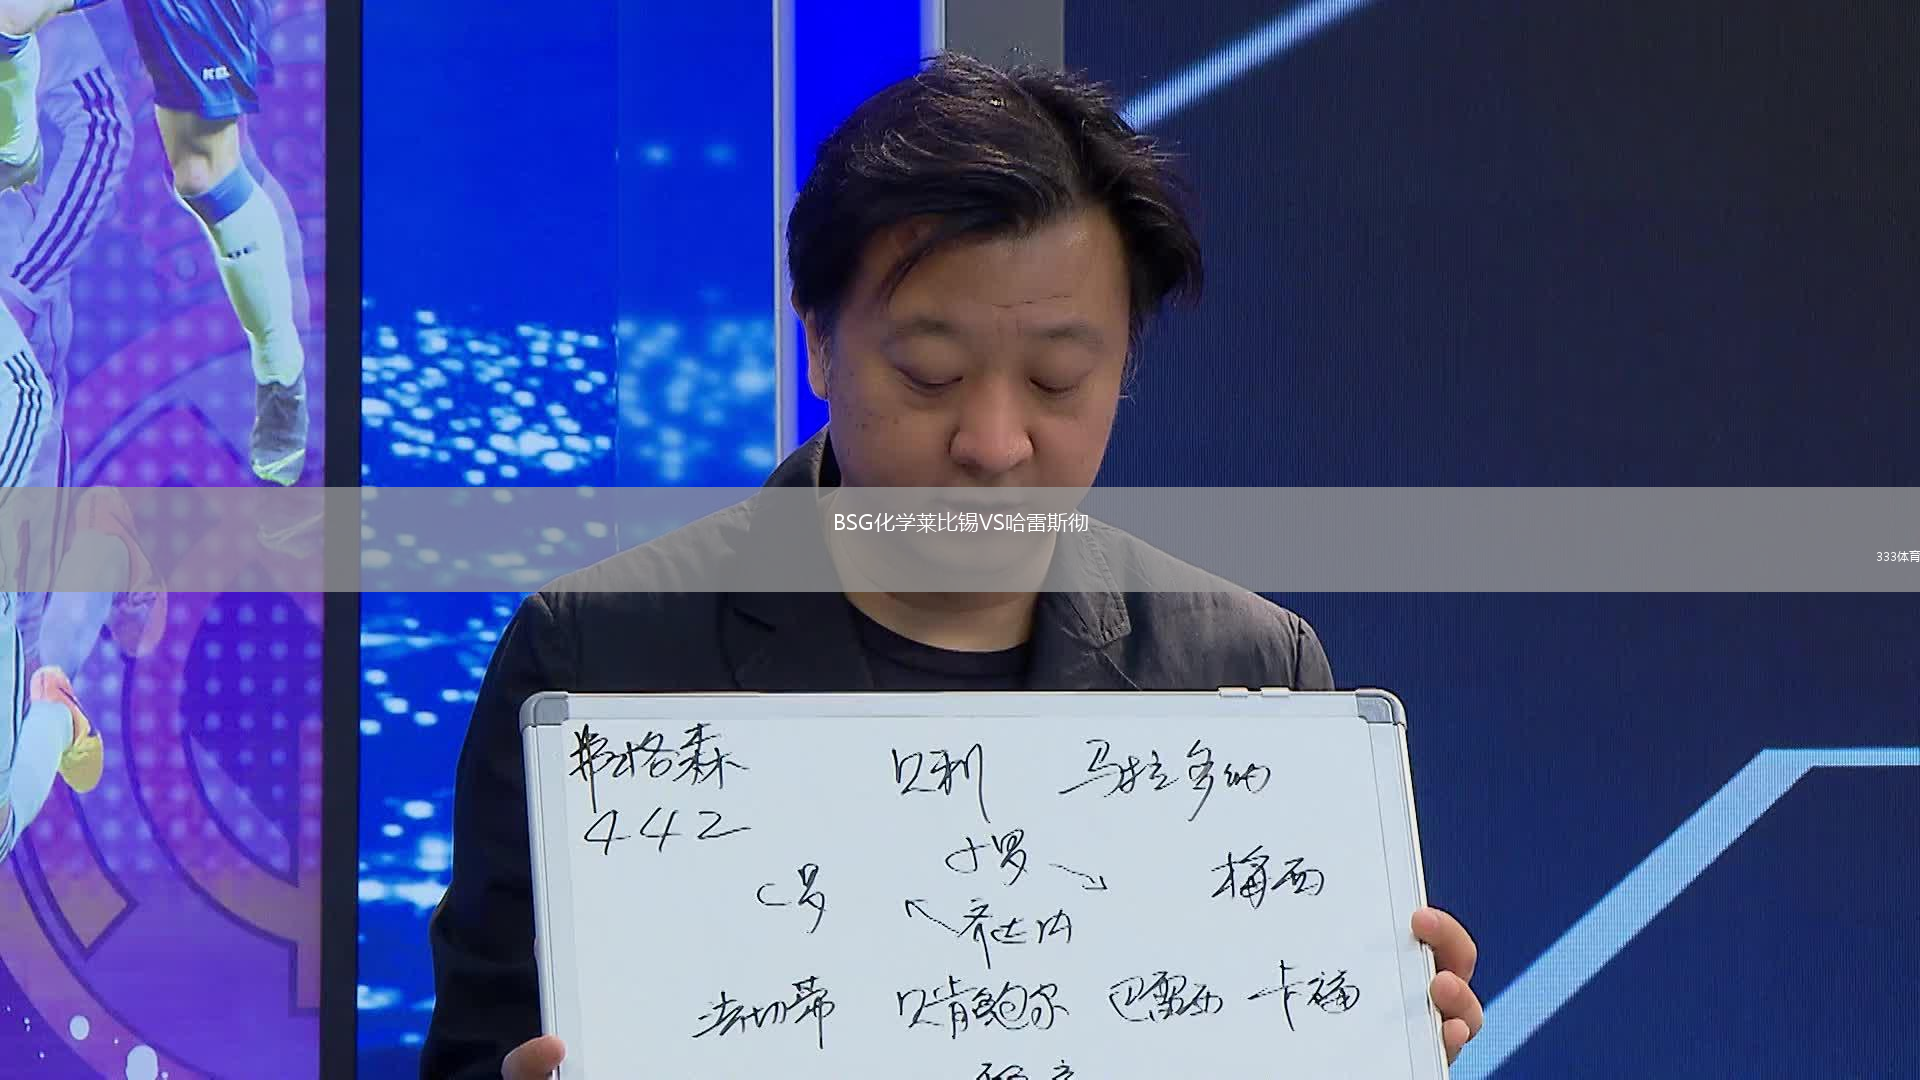 BSG化学莱比锡VS哈雷斯彻
333体育
弗格森 贝利 马拉多纳
442
小罗
C罗 梅西
齐达内
法切蒂 贝肯鲍尔 巴雷西 卡福